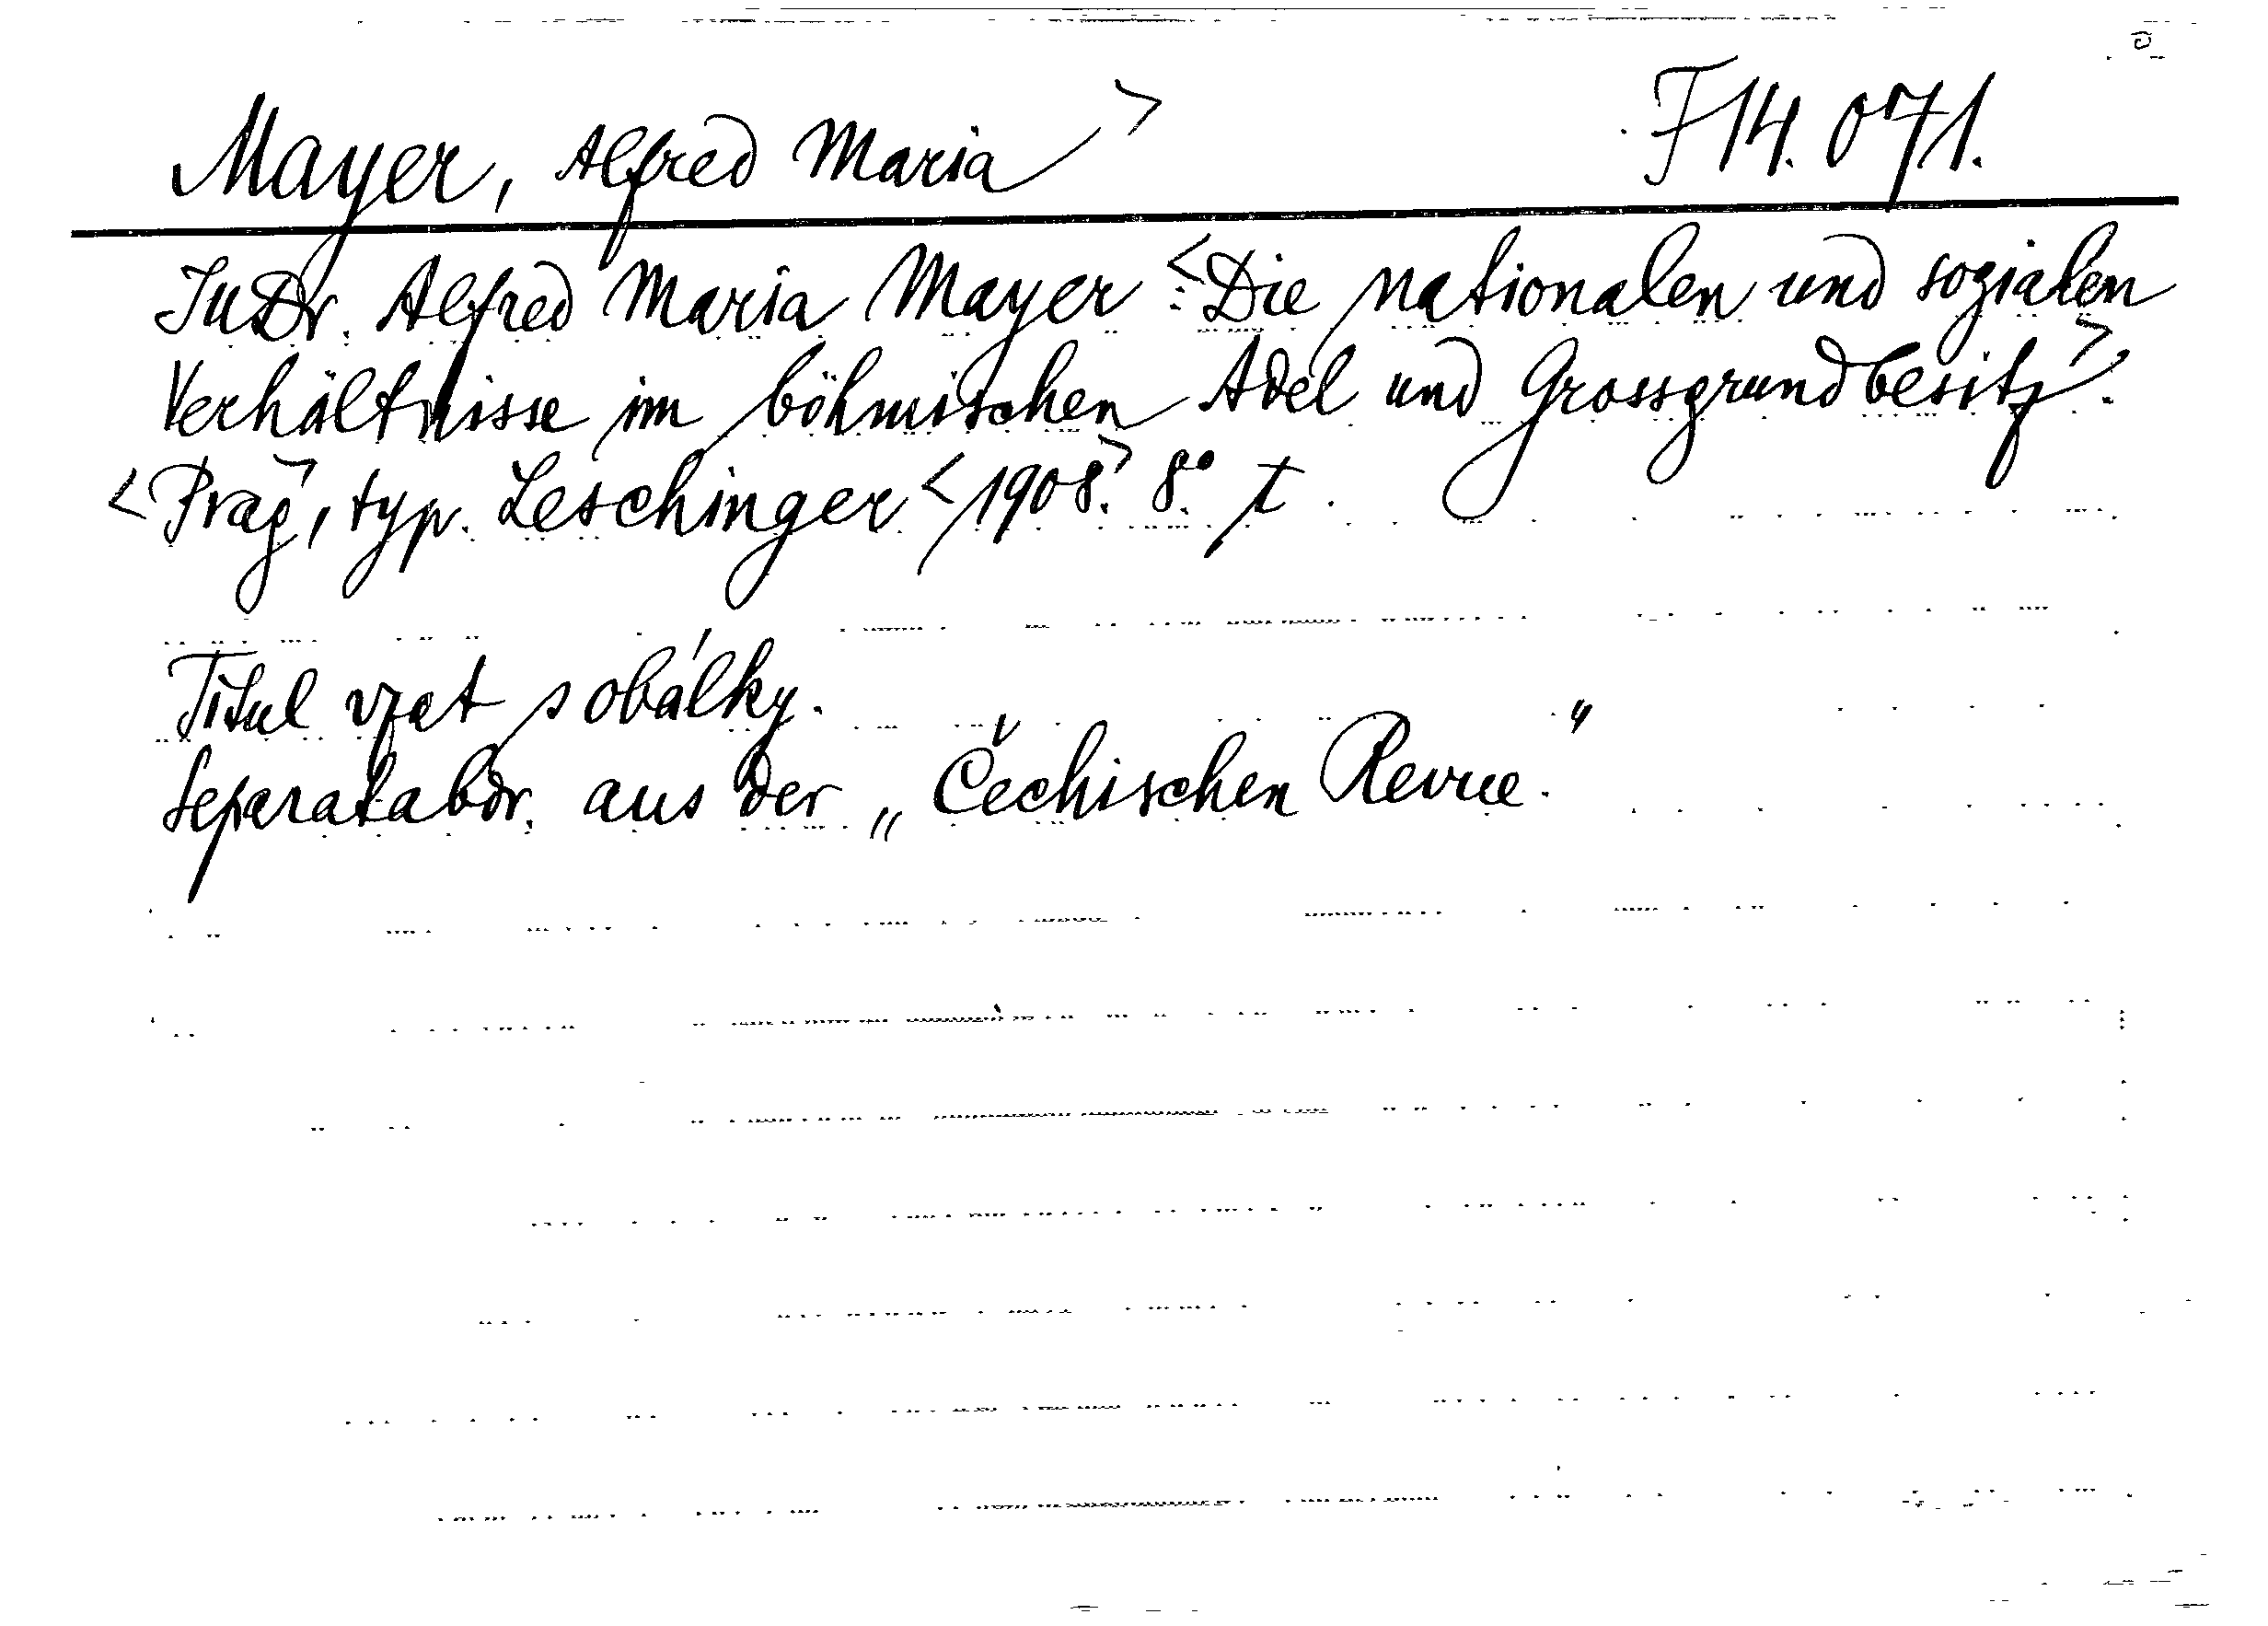 Mayer, Alfred Maria> F 14.071.
JuDr. Alfred Maria Mayer: <Die nationalen und sozialen
Verhältnisse im böhmischen Adel und Grossgrundbesitz>.
<Prag>, typ. Leschinger <1908>. 8°.
Titul vzat s obálky.
Separatabdr. aus der „Čechischen Revue."